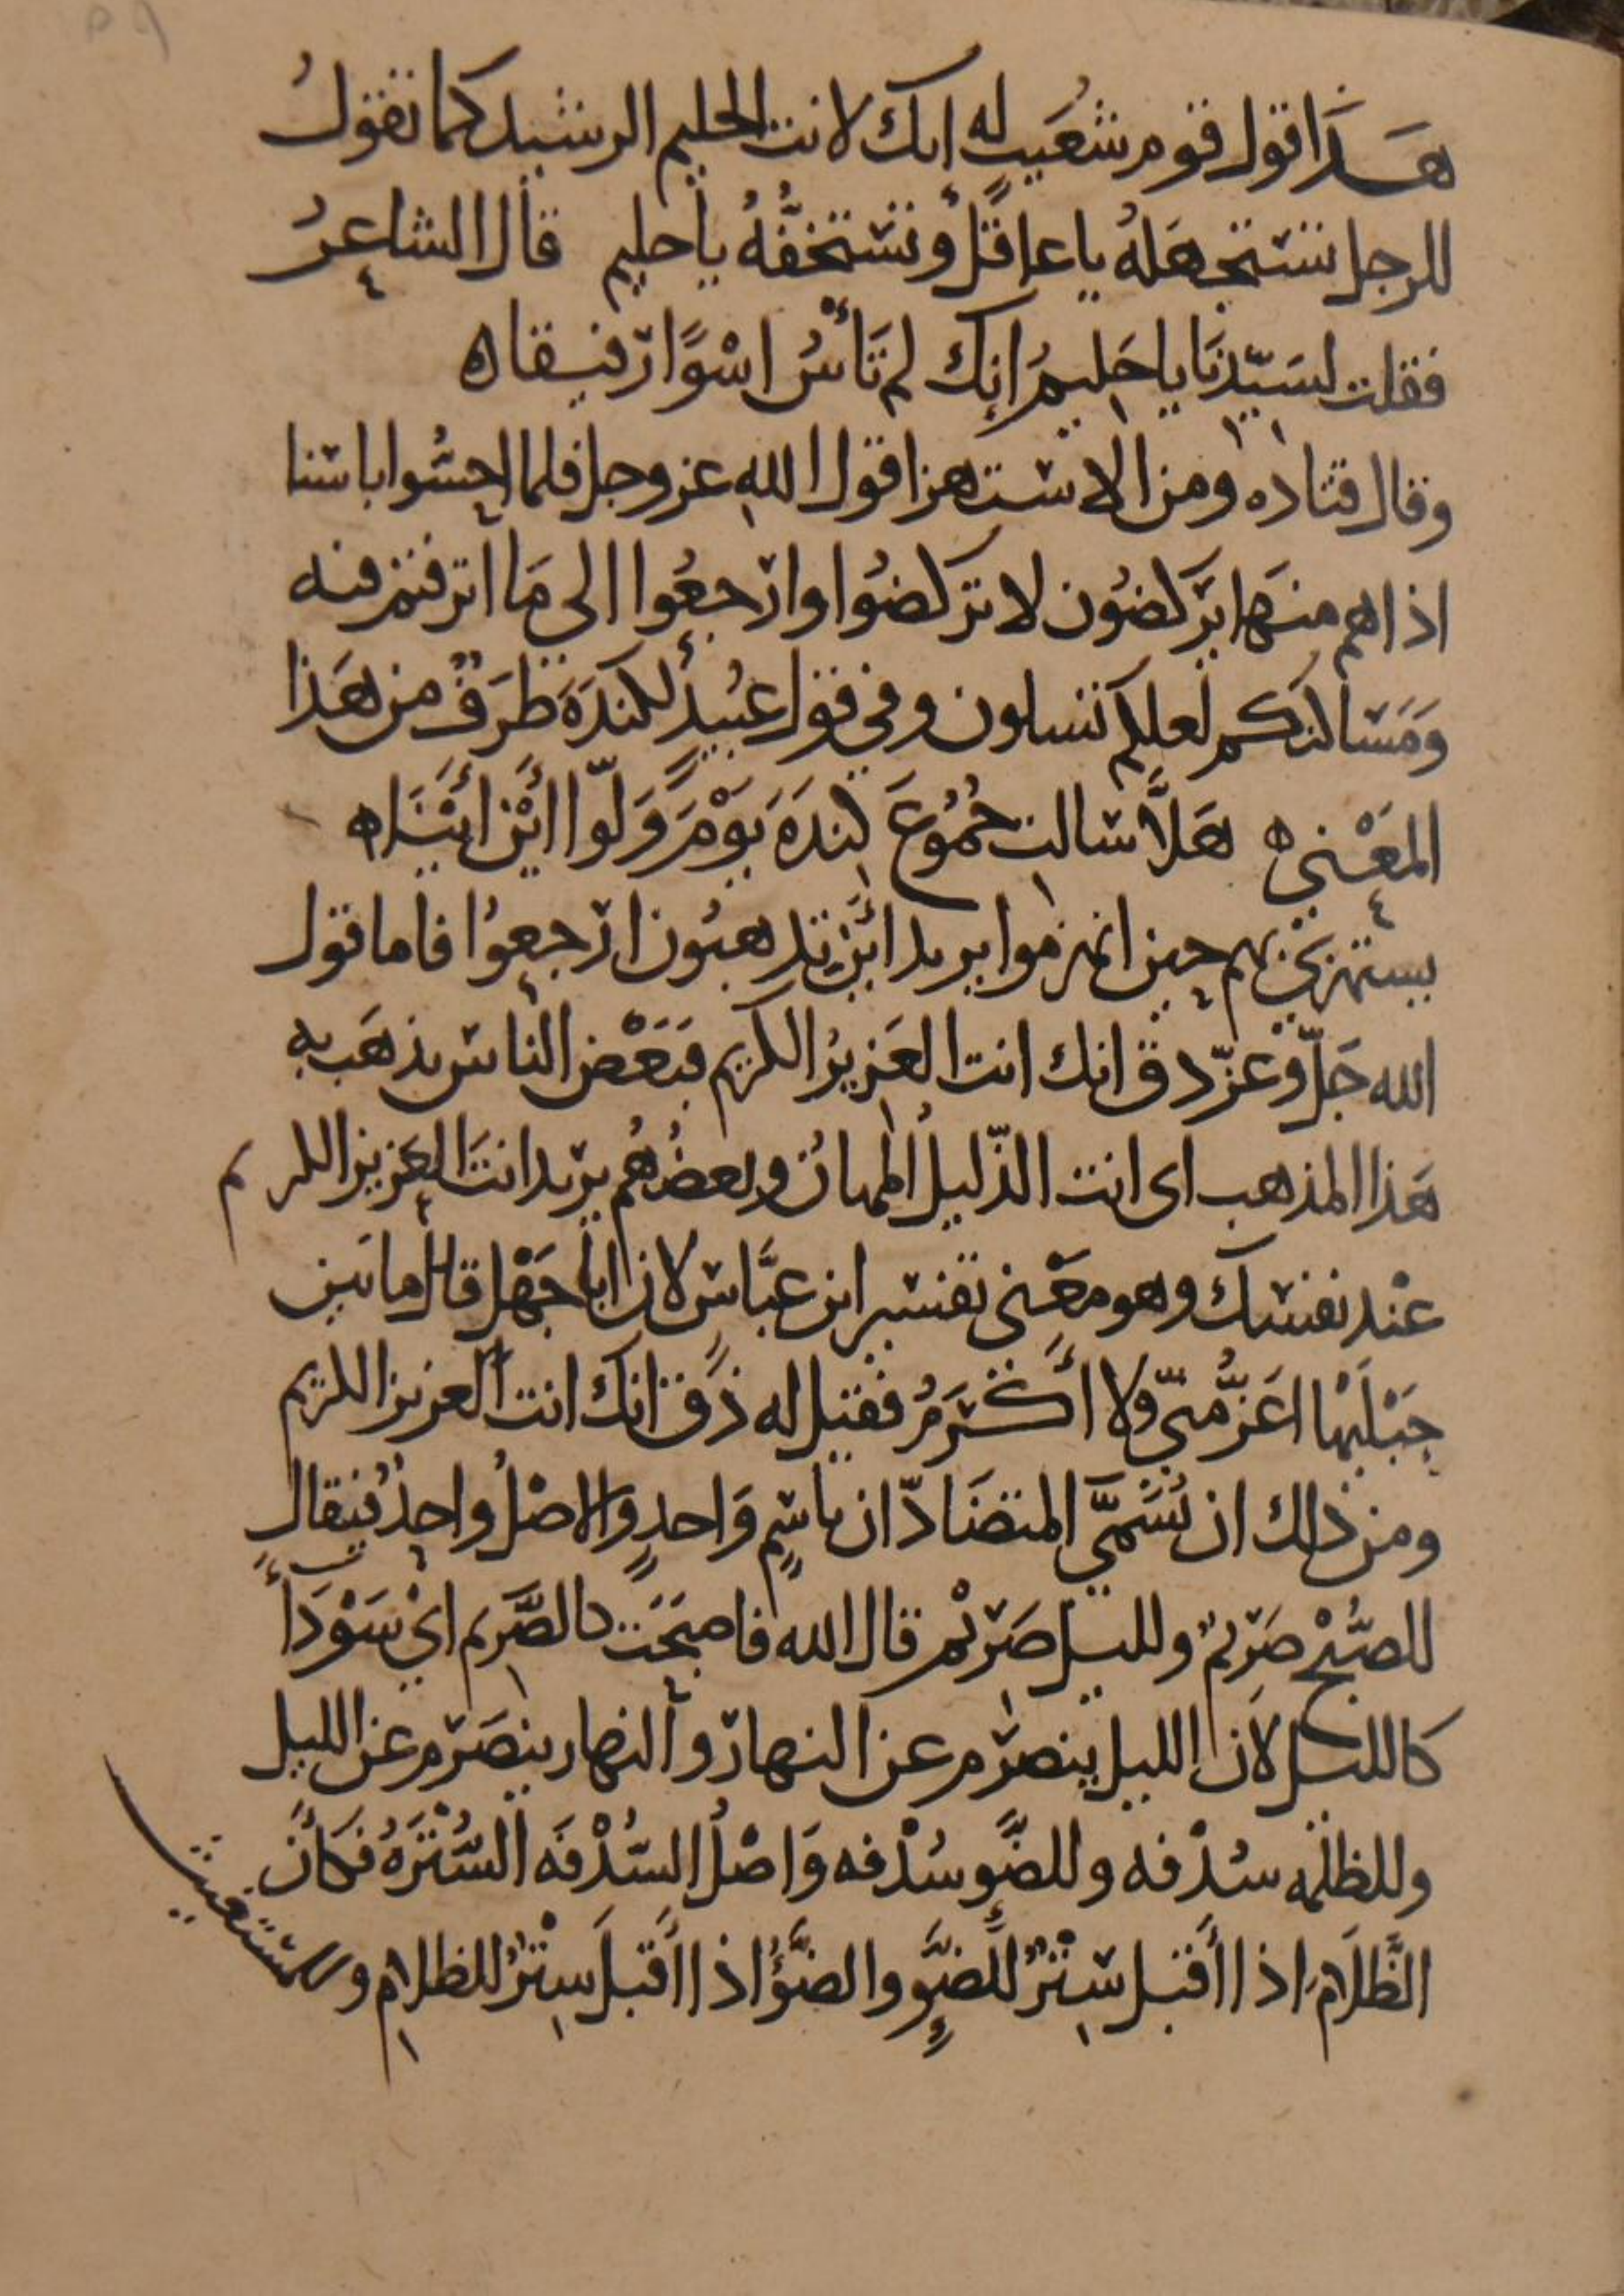 هَذَا قول قوم شعَيب له انك لانت الحليم الرشيد كما تقولُ
للرجل تستجهَلهُ يا عاقلُ وتستخفُّهُ يا حليم قال الشاعرُ
فقلت لسَيّدنَا يا حَلِيمُ إنك لم تَأسُ اسْوًا رفيقا ه
وقال قتاده ومن الاستهزا قول اللهِ عز وجل فلما احسُّوا باسنا
اذا هم منهَا يَركضُون لا تركضُوا وارجعُوا الي مَا اترفتم فيه
وَمَسَاكنكم لعلكم تسلون وفي قول عَبيدٍ لكندَةَ طَرَفٌ من هَذا
المَعْني ه هَلَّا سالت جُمُوعَ كِندَةَ يَوْمَ وَلَّوا أيْنَ أيْنَا ه
يستهزئ بهم حين انهزموا يريد أيْنَ تذهبُون ارجعِوُا فاما قول
الله جَلّ وعَزّ ذق انك انت العَزيزُ الكريم فبَعْض الناس يذهَب به
هَذا المذهب اي انت الذّليلُ المهانُ وبعضُهُم يريد انتَ العَزيز الكريم
عنْد نفسك وهو معَنى تفسير ابن عبَّاسٍ لان ابا جَهْل قال ما بين
جَبَليْها اعَزُّ مني ولا أكْرَمُ فقيل له ذق انك انت العزيز الكريم
ومن ذلك ان يُسَمَّي المتضَادّان باسْمٍ وَاحدٍ والاصْلُ واحِدٌ فيقال
للصُّبْح صَرِيمٌ ولليل صَرِيْم قال الله فاصبَحَت كالصَّرِيم ايْ سَوْدَاءَ
كالليل لأن الليل ينصَرِم عن النهار والنهار ينصَرِم عن الليل
وللظلمه سُدْفه وللضَّو سُدْفه وَاصْلُ السُّدْفَه السُّتْرَةُ فَكَأنَّ
الظَّلَامَ اذا أقبَل سِتْرٌ للضَّوءِ والضَّوْءُ اذا أقبَلَ سِتْرٌ للظلامِ وللمستغيث